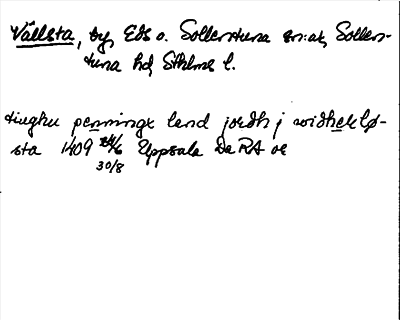 Vällsta, by, Eds o. Sollentuna sn:ar, Sollen-
tuna hd, Sthlms l.
tiughu penninge land jordh j widhekLø-
sta 1409 24/6 Uppsala Da RA or
30/8